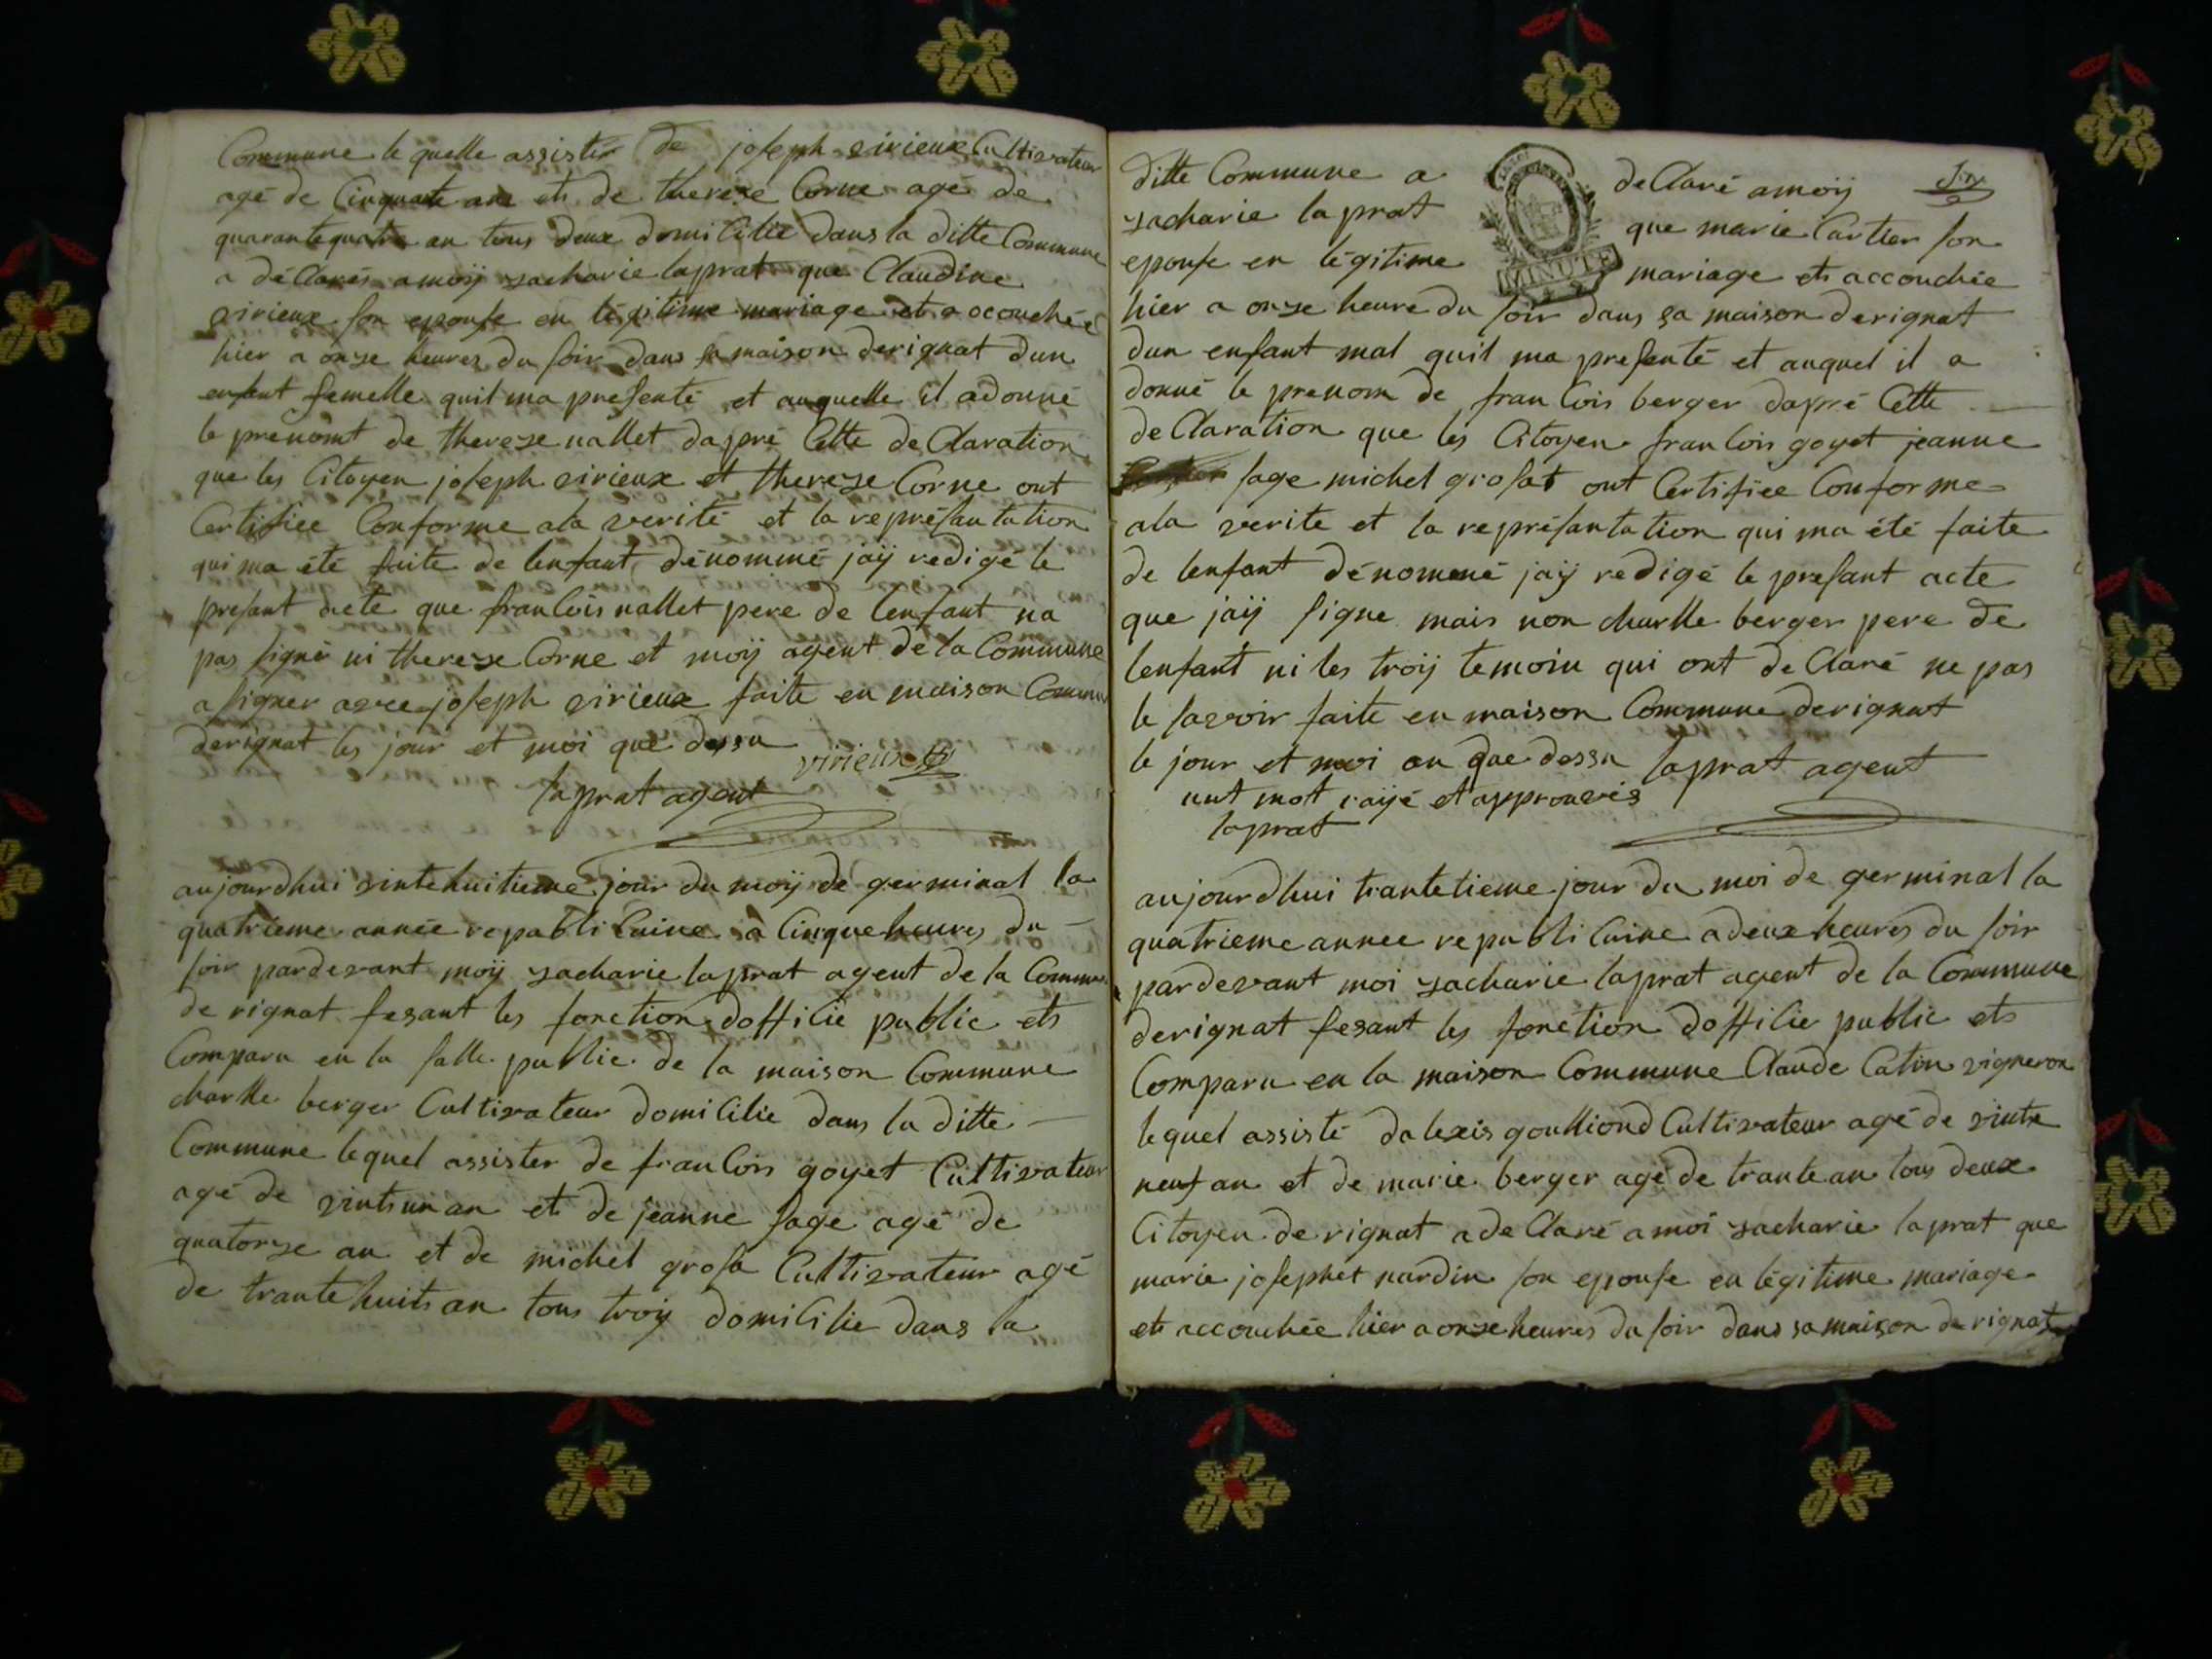 Commune le quelle assister de joseph virieux Cultivateur
agé de Cinquate ans et de thereze Corne agé de
quarantequatre an tous deux domiCilié dans la ditte Commune
a déClarés amoÿ zacharie laprat que Claudine
virieux son epouse en légitime mariage et accouchéé
hier a onze heures du soir dans sa maison derignat dun
enfent femelle quil ma presenté et auquelle il adonné
le prenomt de thereze nallet dapré Cette deClaration
que les Citoyen joseph virieux et thereze Corne ont
Certifiee Conforme ala verité et la représantation
qui ma été faite de lenfant dénommé jaÿ redigé le
presant acte que franCois nallet pere de lenfant na
pas signé ni thereze Corne et moÿ agent de la Commune
a signer avec joseph virieux faite en maison Commun
derignat les jour et moi que dessu
virieux
laprat agent
aujourdhui vintehuitieme jour du moÿ de germinal la
quatrieme année republiCaine a Cinque heures du
soir pardevant moÿ zacharie laprat agent de la Commun
de rignat fesant les fonction doffiCié public et
Comparu en la salle public de la maison Commune
charlle berger Cultivateur domiCilié dans la ditte
Commune lequel assister de franCois goyet Cultivateur
agé de vintsun an et de jeanne sage agé de
quatorze an et de michel grosa Cultivateur agé
de trantehuits an tous troÿ domiCilie dans la
ditte Commune a deClaré amoÿ
zacharie laprat que marie Cartier son
epouse en légitime mariage et accouchée
MINUTE
hier a onze heure du soir dans sa maison derignat
dun enfant mal quil ma presenté et auquel il a
donné le prenom de franCois berger dapré Cette
deClaration que les Citoyen franCois goyet jeanne
sage michel grosat ont Certifiee Conforme
ala verite et la représantation qui ma été faite
de lenfant dénommé jaÿ redigé le presant acte
que jaÿ signe mais non charlle berger pere de
lenfant ni les troÿ temoin qui ont deClaré ne pas
le savoir faite en maison Commune derignat
le jour et moi an que dessu laprat agent
unt mot raÿé et approuvés
laprat
aujourdhui trantetieme jour du moi de germinal la
quatrieme annee republiCaine adeux heures du soir
pardevant moi zacharie laprat agent de la Commune
derignat fesant les fonction doffiCié public et
Comparu en la maison Commune Claude Catin vigneron
lequel assisté dalexis goulliond Cultivateur agé de vinte
neuf an et de marie berger agé de trante an tous deux
Citoyen de rignat a deClaré amoi zacharie laprat que
marie josephet nardin son epouse en légitime mariage
et accouchée hier a onze heures du soir dans sa maison derignat